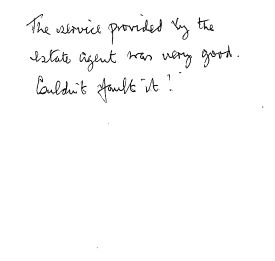 The service provided by the
estate agent was very good.
Couldn't fault it!